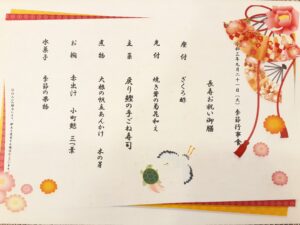 令和三年九月二十一日（火） 季節行事食
長寿お祝い御膳
座付 ざくろ酢
先付 焼き茸の菊花和え
主菜 戻り鰹の手こね寿司
煮物 大根の帆立あんかけ 木の芽
お椀 赤出汁 小町麩 三つ葉
水菓子 季節の果物